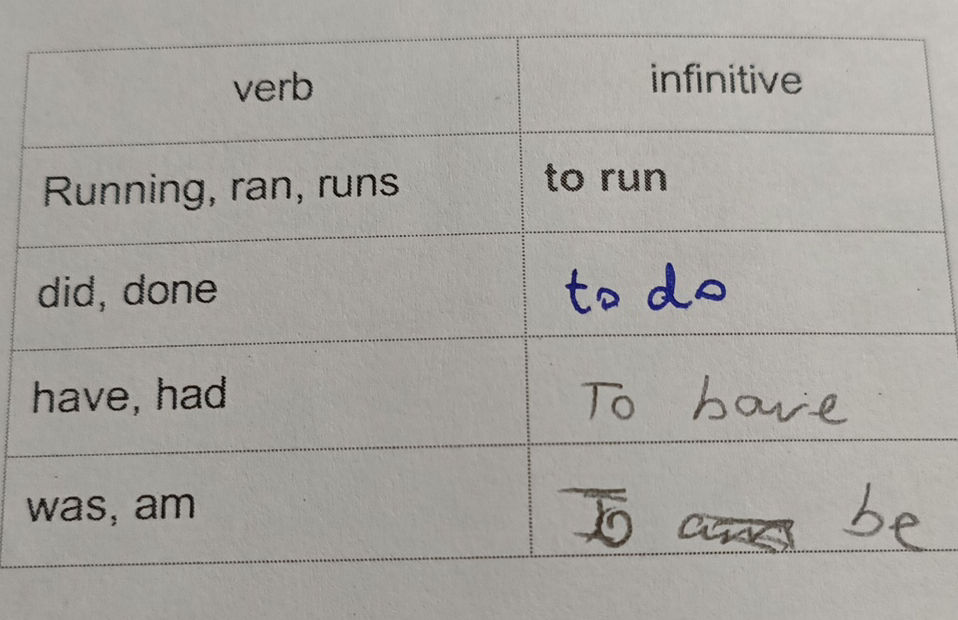 verb infinitive
Running, ran, runs to run
did, done to do
have, had To have
was, am To be